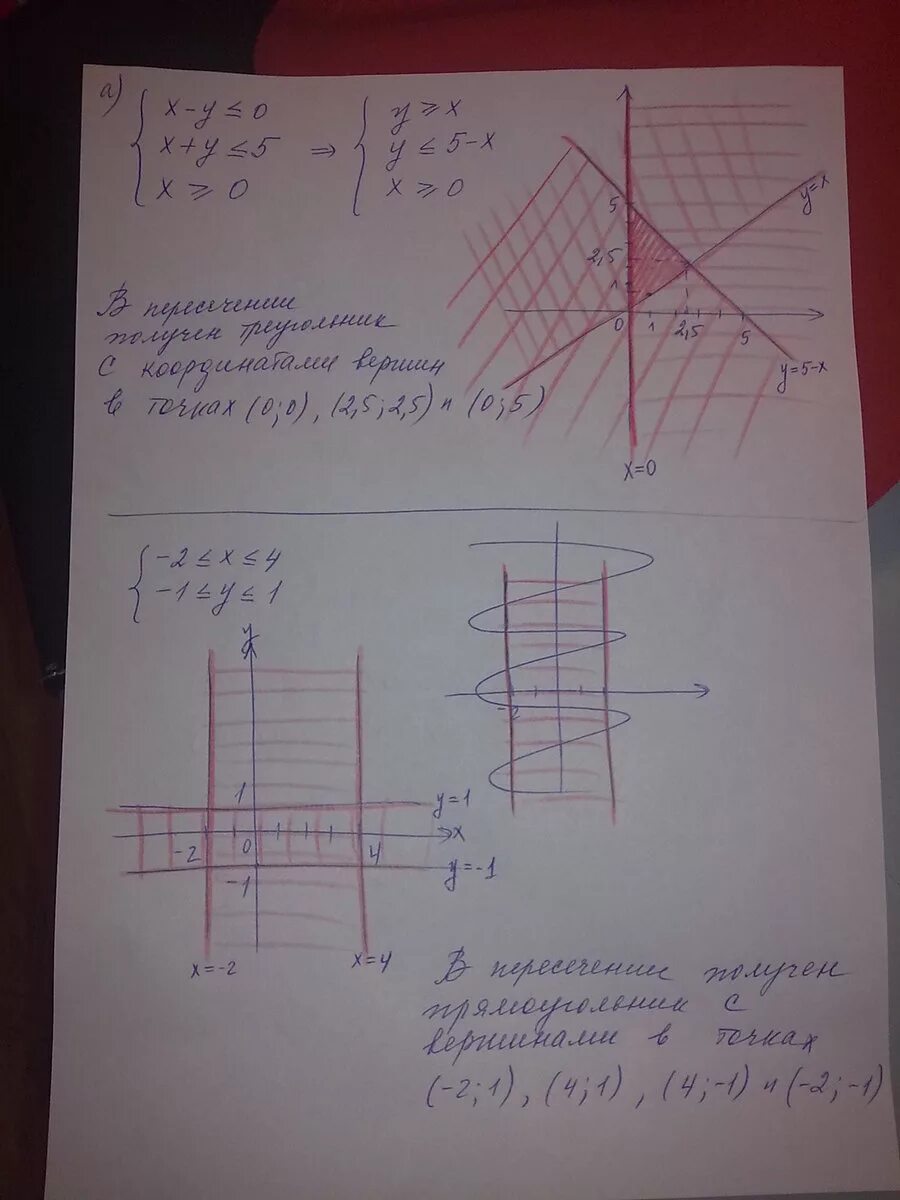 а)
x-y ≤ 0
x+y ≤ 5
x ≥ 0
⇒
y ≥ x
y ≤ 5-x
x ≥ 0
В пересечении
получен треугольник
с координатами вершин
в точках (0;0), (2,5;2,5) и (0;5)
5
2,5
1
0
1
2,5
5
y=x
y=5-x
x=0
-2 ≤ x ≤ 4
-1 ≤ y ≤ 1
y
1
y=1
-2
0
4
x
-1
y=-1
x=-2
x=4
-2
В пересечении получен
прямоугольник с
вершинами в точках
(-2;1), (4;1), (4;-1) и (-2;-1)